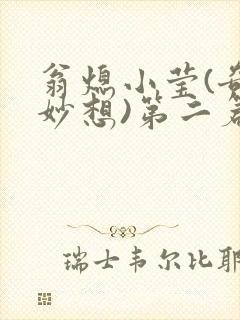 翁熄小莹(奇
妙想)第二部
瑞士韦尔比耶